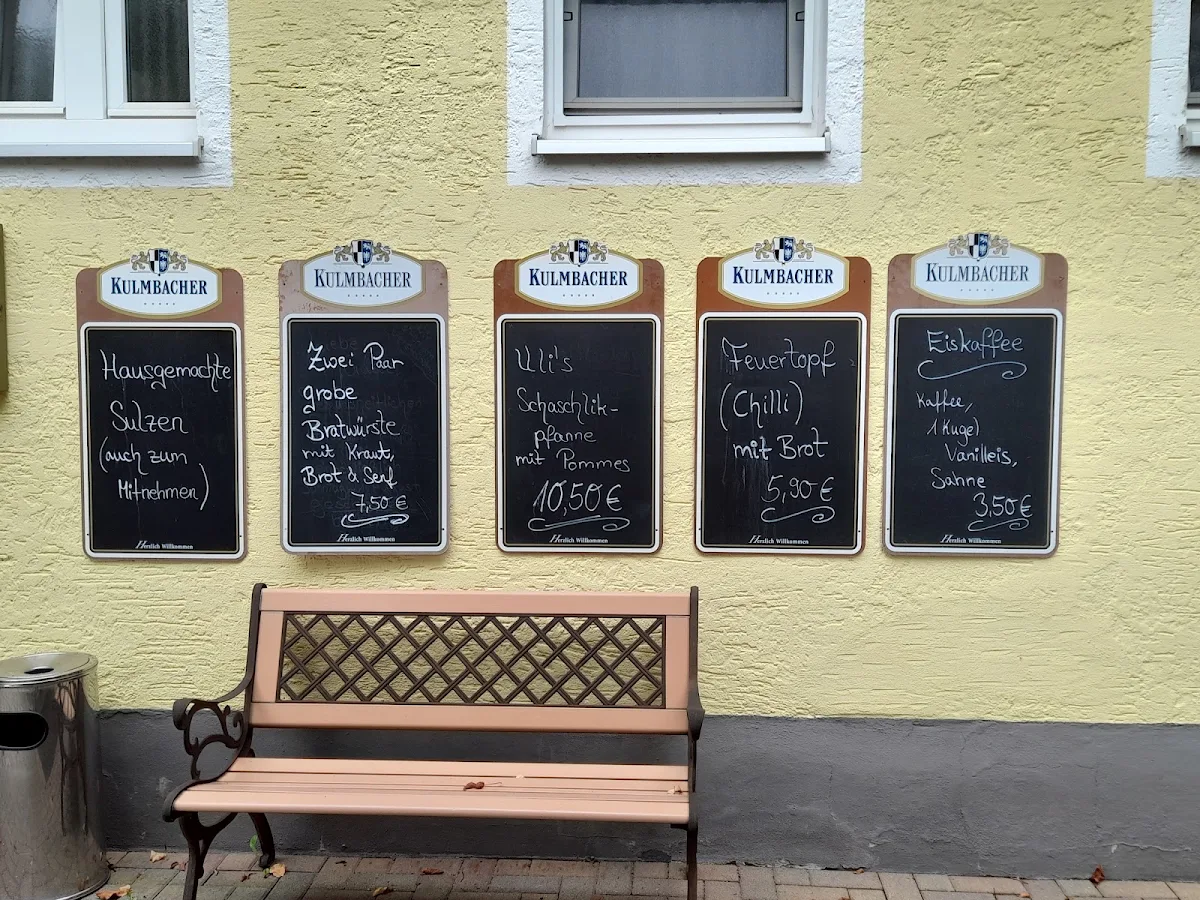 KULMBACHER
Hausgemachte
Sulzen
(auch zum
Mitnehmen)
Herzlich Willkommen
KULMBACHER
Zwei Paar
grobe
Bratwürste
mit Kraut,
Brot & Senf
7,50 €
Herzlich Willkommen
KULMBACHER
Uli's
Schaschlik-
pfanne
mit Pommes
10,50 €
Herzlich Willkommen
KULMBACHER
Feuertopf
(Chilli)
mit Brot
5,90 €
Herzlich Willkommen
KULMBACHER
Eiskaffee
Kaffee,
1 Kugel
Vanilleis,
Sahne
3,50 €
Herzlich Willkommen